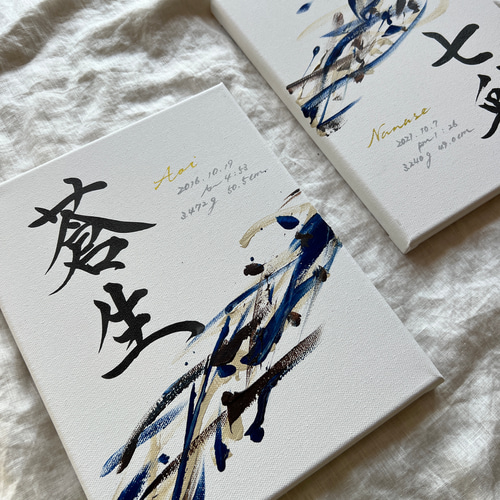 蒼生
Aoi
2016.10.17
3472g 50.5cm
七
Nanase
2021.10.7
pm 1:26
3240g 49.0cm